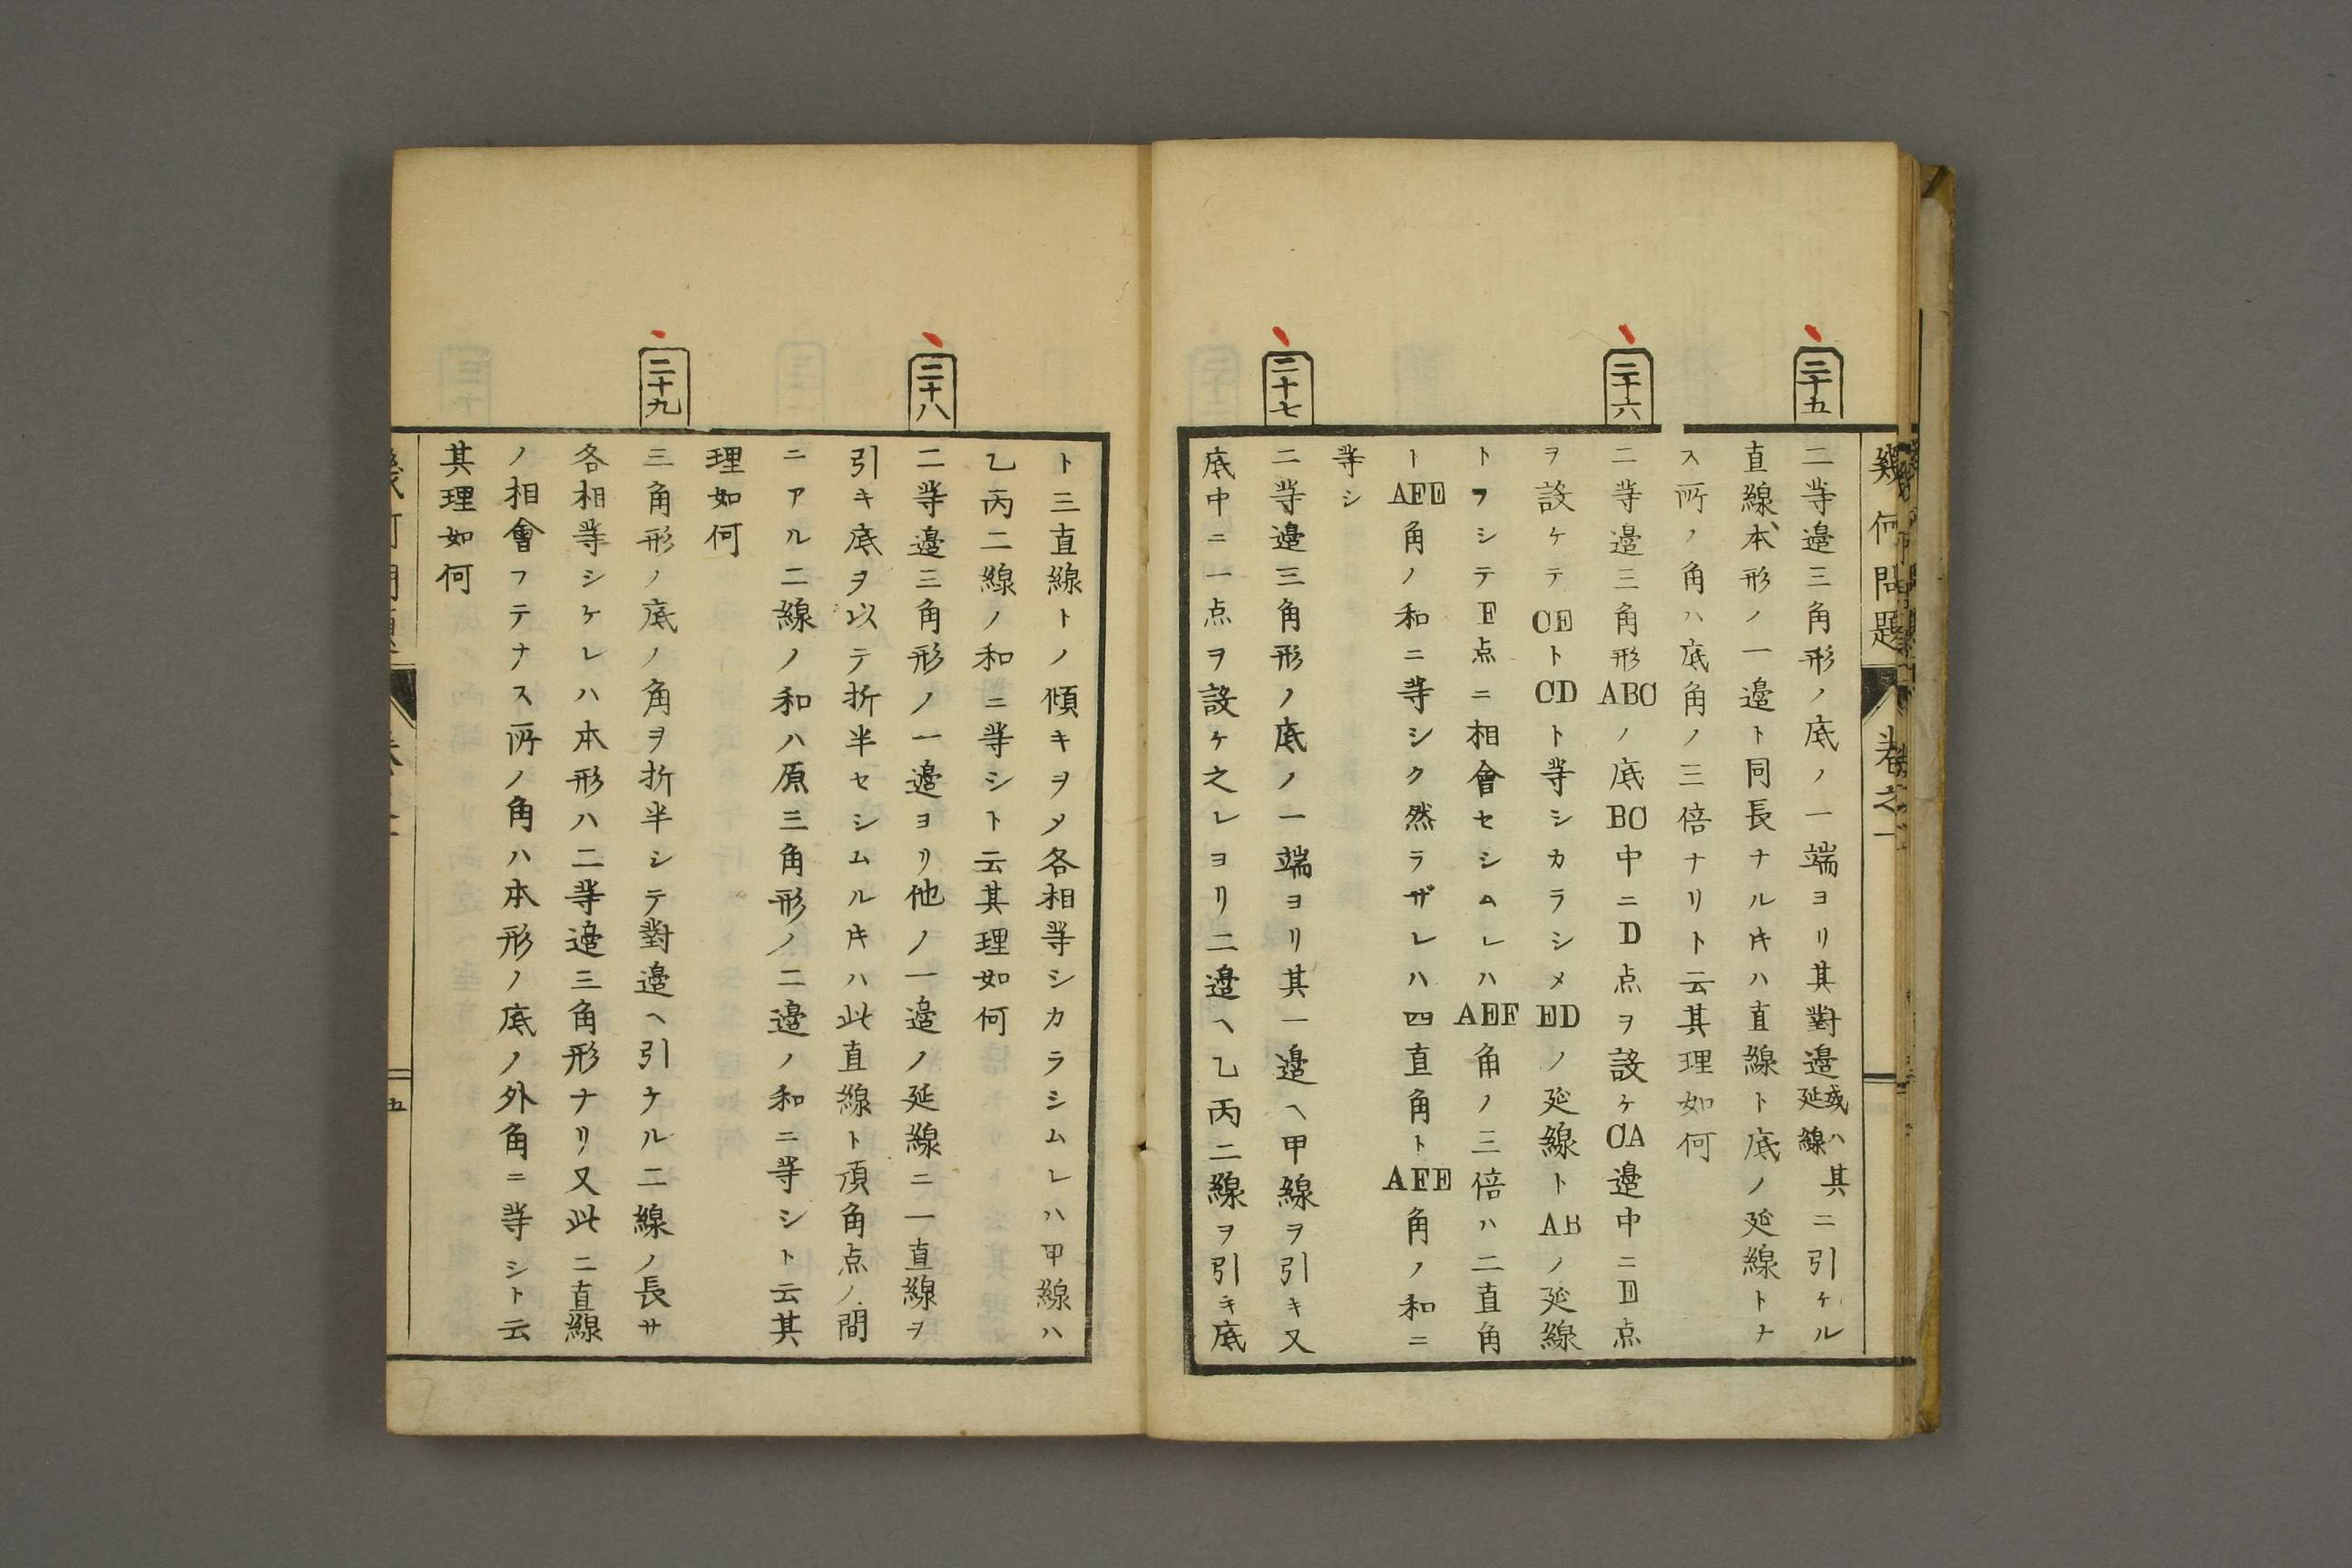 幾何問題 卷之一
二十五
二等邉三角形ノ底ノ一端ヨリ其對邉或ハ其延線ニ引ケル
直線、本形ノ一邉ト同長ナルキハ直線ト底ノ延線トナ
ス所ノ角ハ底角ノ三倍ナリト云其理如何
二十六
二等邉三角形ABCノ底BC中ニD点ヲ設ケCA邉中ニE点
ヲ設ケテCEトCDト等シカラシメEDノ延線トABノ延線
トヲシテF点ニ相會セシムレハAEF角ノ三倍ハ二直角
トAFE角ノ和ニ等シク然ラザレハ四直角トAFE角ノ和ニ
等シ
二十七
二等邉三角形ノ底ノ一端ヨリ其一邉ヘ甲線ヲ引キ又
底中ニ一点ヲ設ケ之レヨリ二邉ヘ乙丙二線ヲ引キ底
ト三直線トノ傾キヲメ各相等シカラシムレハ甲線ハ
乙丙二線ノ和ニ等シト云其理如何
二十八
二等邉三角形ノ一邉ヨリ他ノ一邉ノ延線ニ一直線ヲ
引キ底ヲ以テ折半セシムルキハ此直線ト頂角点ノ間
ニアル二線ノ和ハ原三角形ノ二邉ノ和ニ等シト云其
理如何
二十九
三角形ノ底ノ角ヲ折半シテ對邉ヘ引ケル二線ノ長サ
各相等シケレハ本形ハ二等邉三角形ナリ又此二直線
ノ相會フテナス所ノ角ハ本形ノ底ノ外角ニ等シト云
其理如何
五